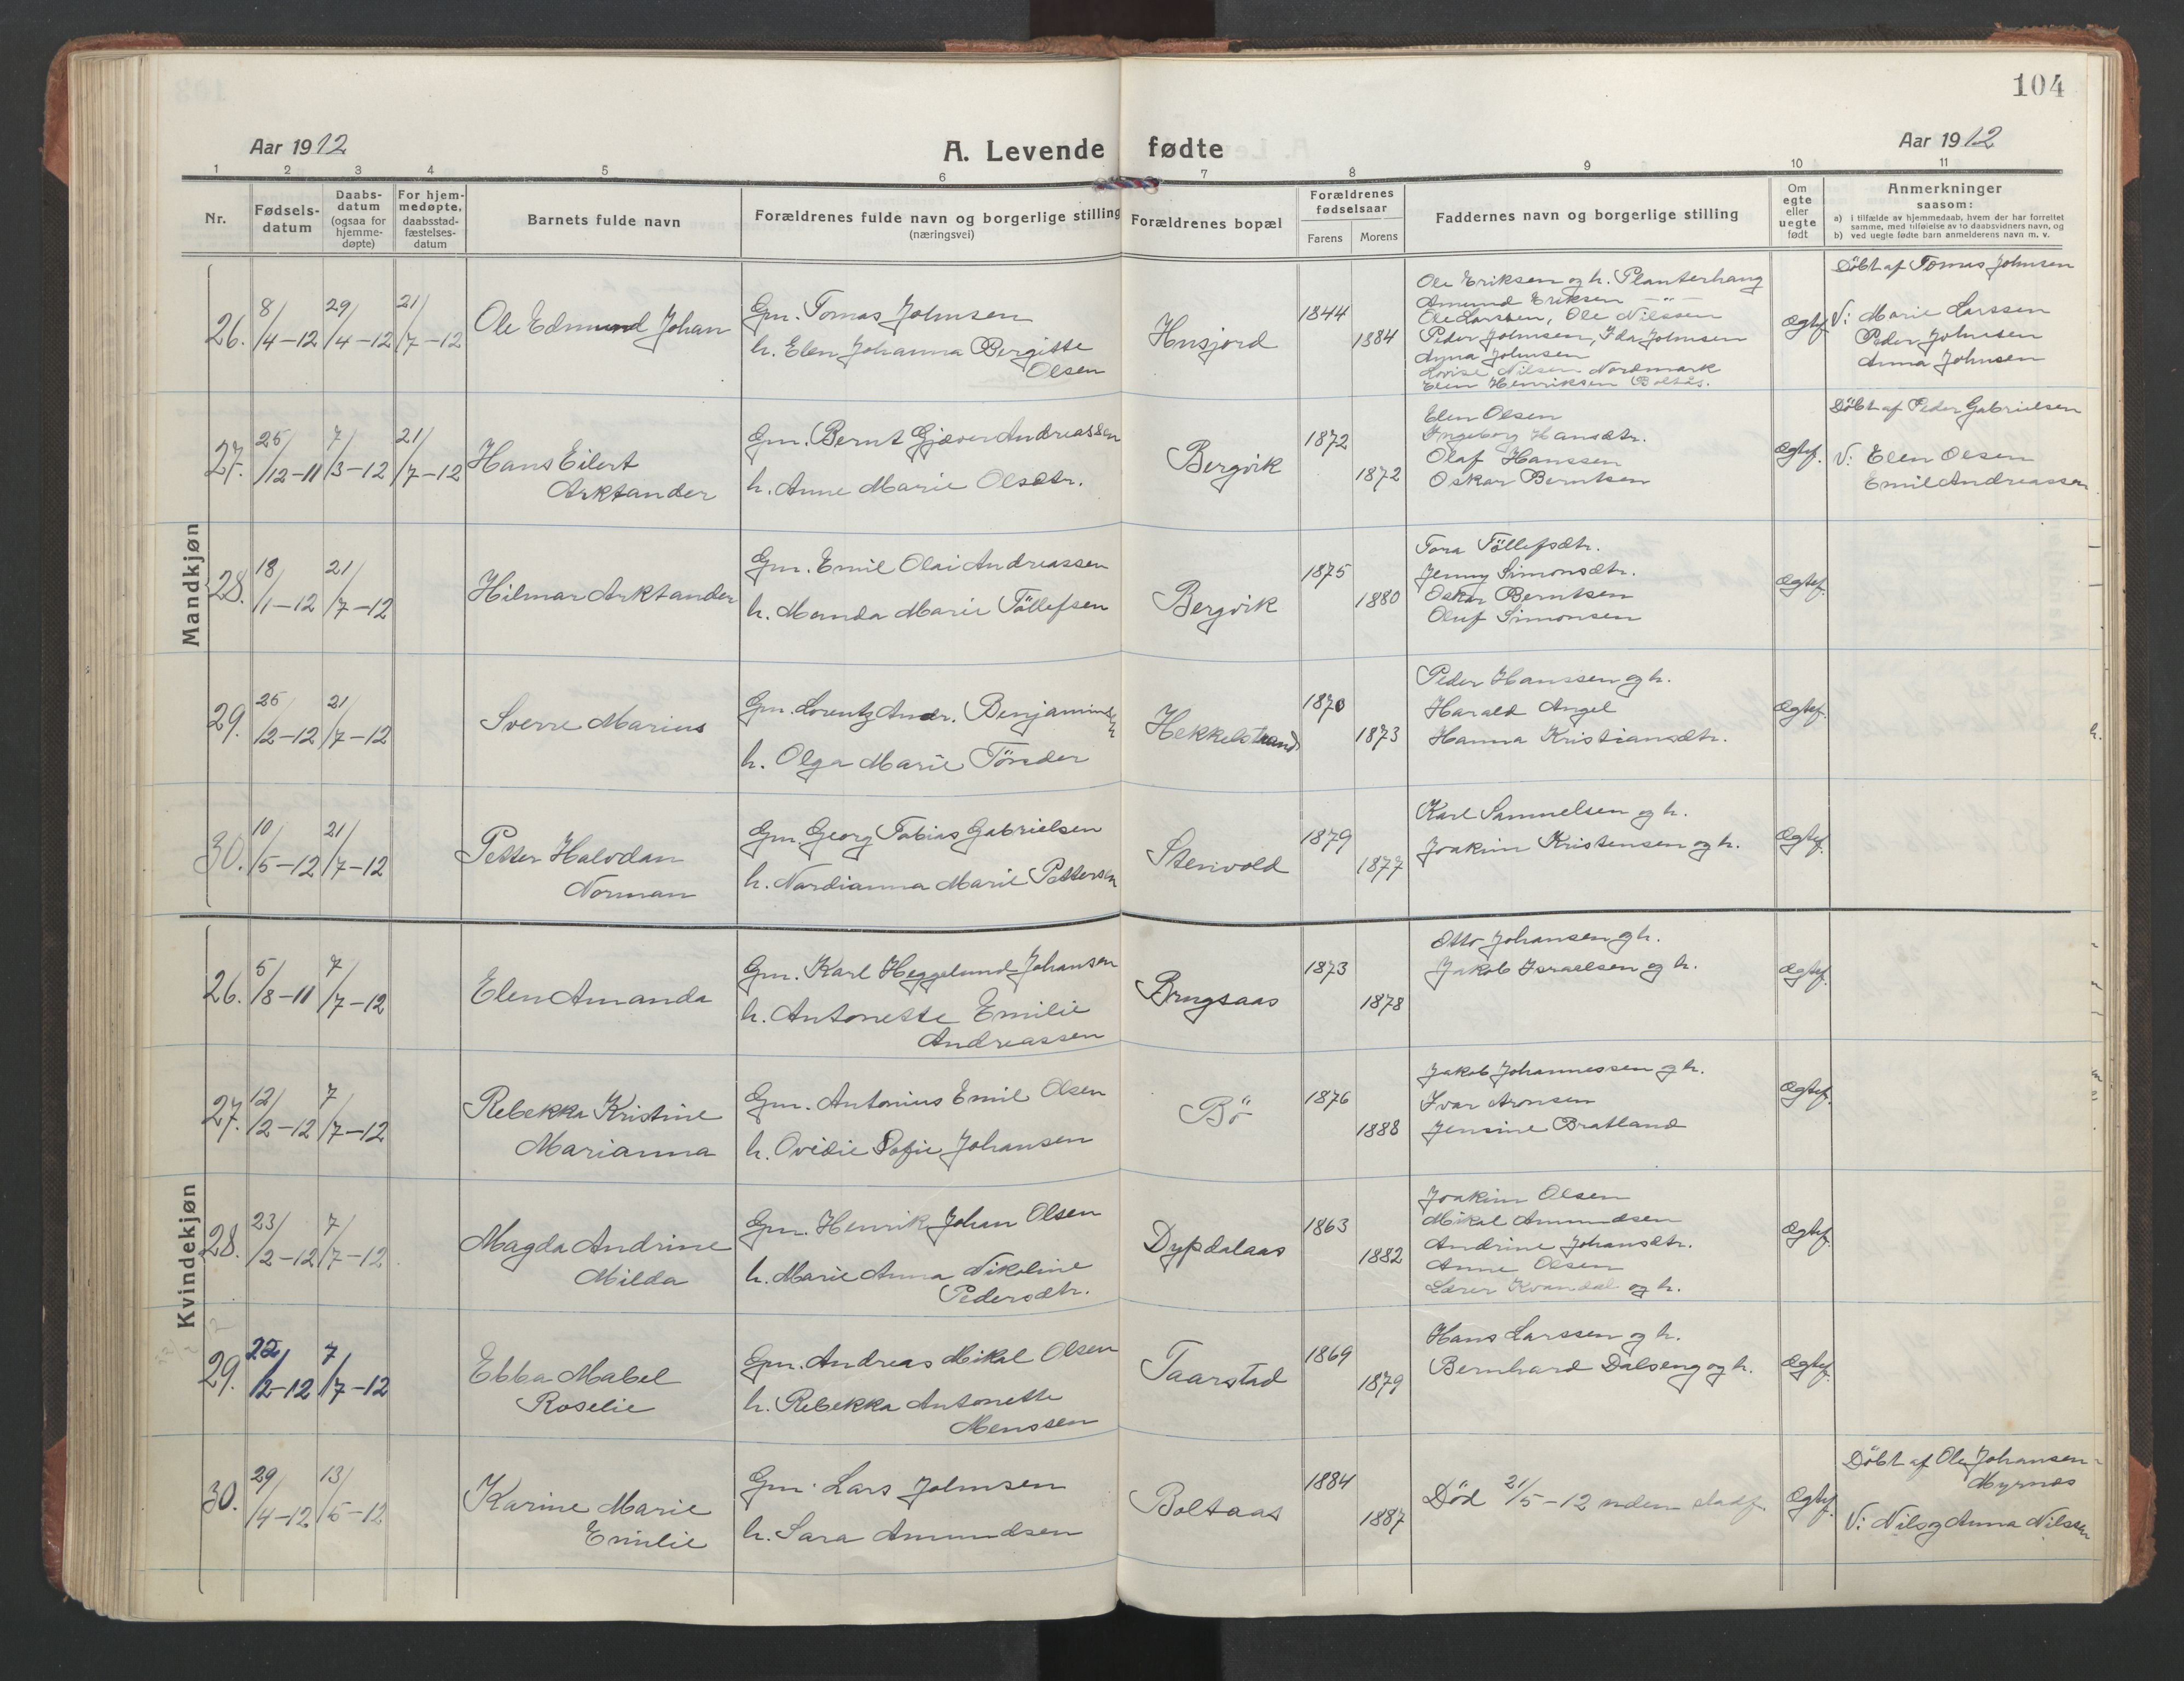 104
Aar 1912
A. Levende fødte
Aar 1912
1 2 3 4 5 6 7 8 9 10 11
Nr.
Fødsels-
datum
Daabs-
datum
(ogsaa for
hjemme-
døpte)
For hjem-
medøpte,
daabsstad-
fæstelses-
datum
Barnets fulde navn
Forældrenes fulde navn og borgerlige stilling
(næringsvei)
Forældrenes bopæl
Forældrenes
fødselsaar
Farens Morens
Faddernes navn og borgerlige stilling
Om
egte
eller
uegte
født
Anmerkninger
saasom:
a) i tilfælde av hjemmedaab, hvem der har forrettet
samme, med tilføielse av to daabsvidners navn, og
b) ved uegte fødte barn anmelderens navn m. v.
Mandkjøn
26. 8/4-12 29/4-12 21/7-12
Ole Edmund Johan
Gm. Tomas Johnsen
h. Elen Johanna Bergitte
Olsen
Husjord
1844
1884
Ole Eriksen og h. Planterhaug
Amund Eriksen —"—
Ole Larssen, Ole Nilssen
Peder Johnsen, Ida Johnsen
Anna Johnsen
Lovise Nilsen Nordmark
Elen Henriksen Boltås.
Ægtef.
Döbt af Tomas Johnsen
V: Marie Larssen
Peder Johnsen
Anna Johnsen
27. 25/12-11 7/3-12 21/7-12
Hans Eilert
Arktander
Gm. Bernt Gjæver Andreassen
h. Anne Marie Olsdtr.
Bergvik
1872
1872
Elen Olsen
Ingeborg Hansdtr.
Olaf Hanssen
Oskar Berntsen
Ægtef.
Döbt af Peder Gabrielsen
V: Elen Olsen
Emil Andreassen
28. 18/1-12 21/7-12
Hilmar Arktander
Gm. Emil Olai Andreassen
h. Manda Marie Töllefsen
Bergvik
1875
1880
Tora Töllefsdtr.
Jenny Simonsdtr.
Oskar Berntsen
Oluf Simonsen
Ægtef.
29. 25/2-12 21/7-12
Sverre Marius
Gm. Lorentz Andr. Benjaminsen
h. Olga Marie Tönder
Hekkelstrand
1870
1873
Peder Hanssen og h.
Harald Angel
Hanna Kristiansdtr.
Ægtef.
30. 10/5-12 21/7-12
Petter Halvdan
Norman
Gm. Georg Tobias Gabrielsen
h. Nordianna Marie Pettersen
Stenvold
1879
1877
Karl Samuelsen og h.
Joakim Kristensen og h.
Ægtef.
Kvindekjøn
26. 5/8-11 7/7-12
Elen Amanda
Gm. Karl Heggelund Johansen
h. Antonette Emilie
Andreassen
Brugsaas
1873
1878
Otto Johansen og h.
Jakob Israelsen og h.
Ægtef.
27. 12/2-12 7/7-12
Rebekka Kristine
Marianna
Gm. Antonius Emil Olsen
h. Ovidie Sofie Johansen
Bö
1876
1888
Jakob Johannessen og h.
Ivar Aronsen
Jensine Bratland
Ægtef.
28. 23/2-12 7/7-12
Magda Andrine
Milda
Gm. Henrik Johan Olsen
h. Marie Anna Nikoline
Pedersdtr.
Dypdalaas
1863
1882
Joakim Olsen
Mikal Amundsen
Andrine Johansdtr.
Anne Olsen
Lærer Kvandal og h.
Ægtef.
29. 22/2-12 7/7-12
Ebba Mabel
Roselie
Gm. Andreas Mikal Olsen
h. Rebekka Antonette
Menssen
Taarstad
1869
1879
Hans Larssen og h.
Bernhard Dalseng og h.
Ægtef.
30. 29/4-12 13/5-12
Karine Marie
Emilie
Gm. Lars Johnsen
h. Sara Amundsen
Boltaas
1884
1887
Död 21/5-12 uden stadf.
Ægtef.
Döbt af Ole Johansen-
Myrnes
V: Nils og Anna Nilssen